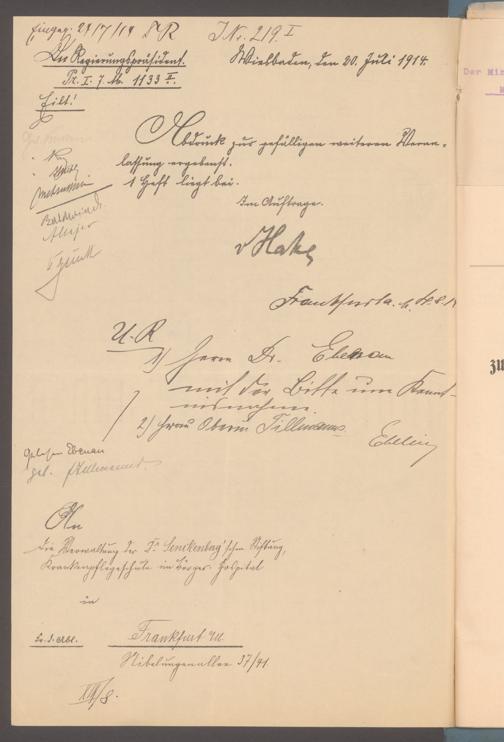 Eingeg. 27/7/14 J.Nr. 219 I
Der Regierungspräsident.
Pr. I. 7. M. 1133 II.
Wiesbaden, den 20. Juli 1914.
Eilt!
Abdruck zur gefälligen weiteren Veran-
lassung ergebenst.
1 Heft liegt bei.
Im Auftrage.
v Hake
Frankfurt a. M.
U. R
1) Herrn Dr. Ebenau
mit der Bitte um Kennt-
nisnahme.
2) Frau Oberin Tillmanns
Ebeling
Gelesen Ebenau
gel. Tillmanns.
An
die Verwaltung der Dr. Senckenberg'schen Stiftung,
Krankenpflegeschule im Bürger-Hospital
in
Frankfurt a/M
Nibelungenallee 37/41
Der Min
zu